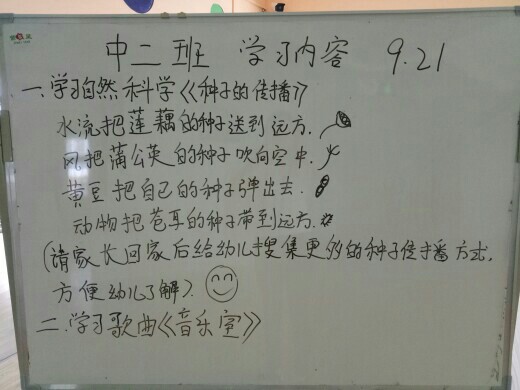 中二班 学习内容 9.21
一.学习自然科学《种子的传播》
水流把莲藕的种子送到远方.
风把蒲公英的种子吹向空中.
黄豆把自己的种子弹出去.
动物把苍耳的种子带到远方.
(请家长回家后给幼儿搜集更多的种子传播方式,
方便幼儿了解).
二.学习歌曲《音乐室》